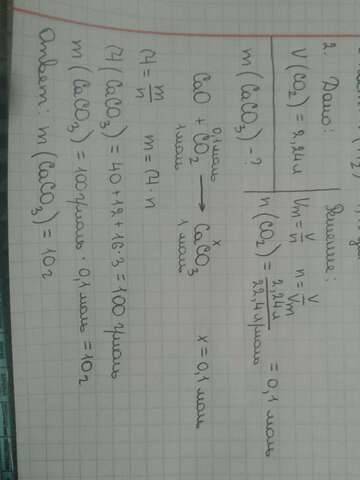 2. Дано:
V(CO₂) = 2,24 л
m(CaCO₃) - ?
Решение:
Vm = V/n n = V/Vm
n(CO₂) = 2,24 л / 22,4 л/моль = 0,1 моль
0,1 моль x
CaO + CO₂ → CaCO₃ x = 0,1 моль
1 моль 1 моль
M = m/n m = M · n
M(CaCO₃) = 40 + 12 + 16·3 = 100 г/моль
m(CaCO₃) = 100 г/моль · 0,1 моль = 10 г
Ответ: m(CaCO₃) = 10 г